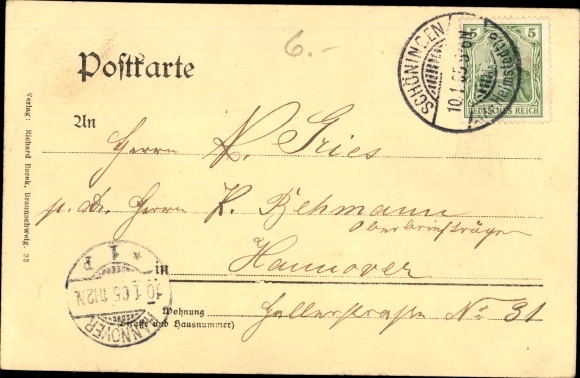 6.-
Postkarte
SCHÖNINGEN
10.1.05.5-6N.
5
DEUTSCHES REICH
An
Herrn K. Gries
p. Adr. Herrn K. Behmann
Oberbriefträger
in Hannover
Wohnung Hallerstraße No 31
(Straße und Hausnummer)
HANNOVER
* 1 P
10.1.05.11-12N.
Verlag: Richard Borek, Braunschweig. 22